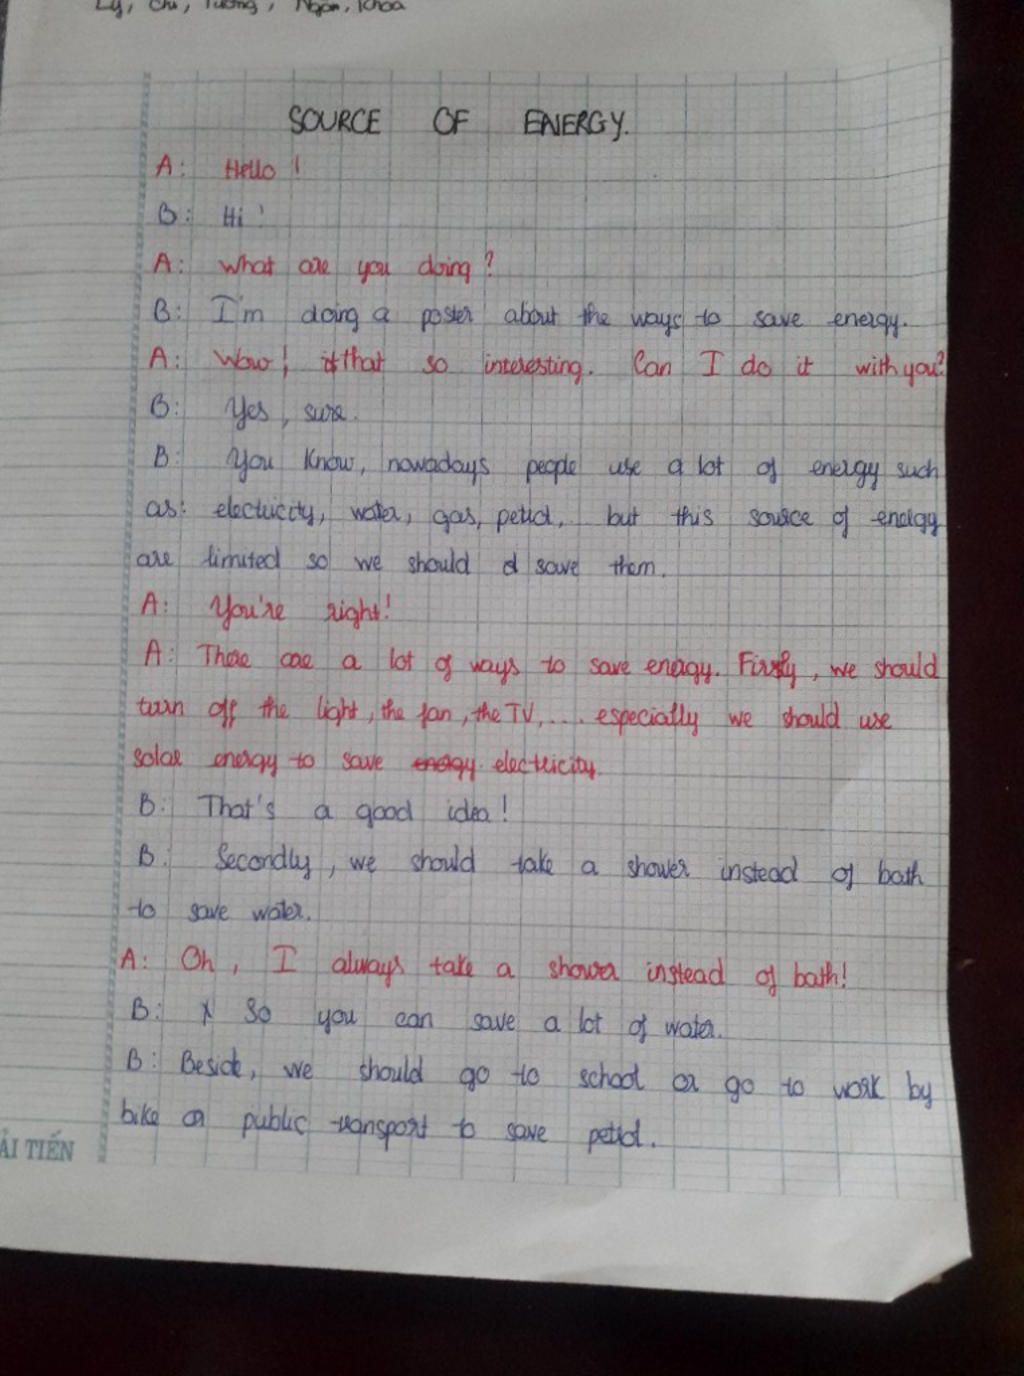 Ly, Chi, Tường, Ngân, Khoa
SOURCE OF ENERGY.
A: Hello!
B: Hi!
A: What are you doing?
B: I'm doing a poster about the ways to save energy.
A: Wow! that so interesting. Can I do it with you?
B: Yes, sure.
B: You know, nowadays people use a lot of energy such
as: electricity, water, gas, petrol, but this source of energy
are limited so we should save them.
A: You're right!
A: There are a lot of ways to save energy. Firstly, we should
turn off the light, the fan, the TV,... especially we should use
solar energy to save energy electricity.
B: That's a good idea!
B: Secondly, we should take a shower instead of bath
to save water.
A: Oh, I always take a shower instead of bath!
B: So you can save a lot of water.
B: Beside, we should go to school or go to work by
bike or public transport to save petrol.
ẢI TIẾN